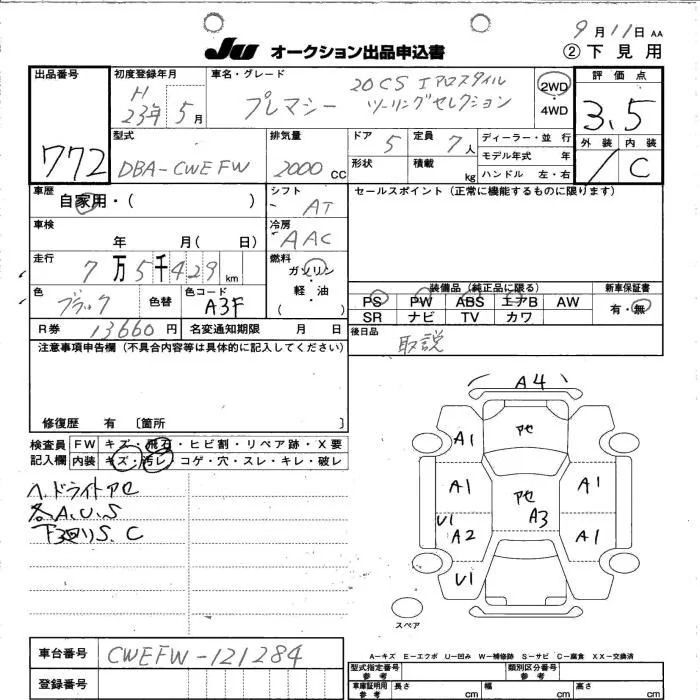 9月11日 AA
JU オークション出品申込書
② 下見用
出品番号 772
初度登録年月 H 23年 5月
車名・グレード プレマシー 20CS エアロスタイル ツーリングセレクション
2WD・4WD
評価点 3.5
外装 / 内装 C
型式 DBA-CWEFW
排気量 2000 CC
ドア 5
定員 7人
形状
積載 kg
ディーラー・並行
モデル年式 年
ハンドル 左・右
車歴 自家用・( )
シフト AT
セールスポイント (正常に機能するものに限ります)
車検 年 月( 日)
冷房 AAC
走行 7万5千429km
燃料 ガソリン 軽・油 ( )
色 ブラック 色替
色コード A3F
装備品(純正品に限る)
PS PW ABS エアB AW
SR ナビ TV カワ
新車保証書 有・無
R券 13660円 名変通知期限 月 日
後日品 取説
注意事項申告欄 (不具合内容等は具体的に記入してください)
修復歴 有 〔箇所 〕
検査員記入欄
FW キズ・飛石・ヒビ割・リペア跡・X要
内装 キズ・汚レ・コゲ・穴・スレ・キレ・破レ
ヘッドライトアセ
各A、U、S
下廻りS、C
A4
A1 アセ
A1 アセ A1
U1 A2 A3 A1
U1
スペア
A-キズ E-エクボ U-凹み W-補修跡 S-サビ C-腐食 XX-交換済
車台番号 CWEFW-121284
登録番号
型式指定番号 参考
類別区分番号 参考
車庫証明用 参考 長さ cm 幅 cm 高さ cm